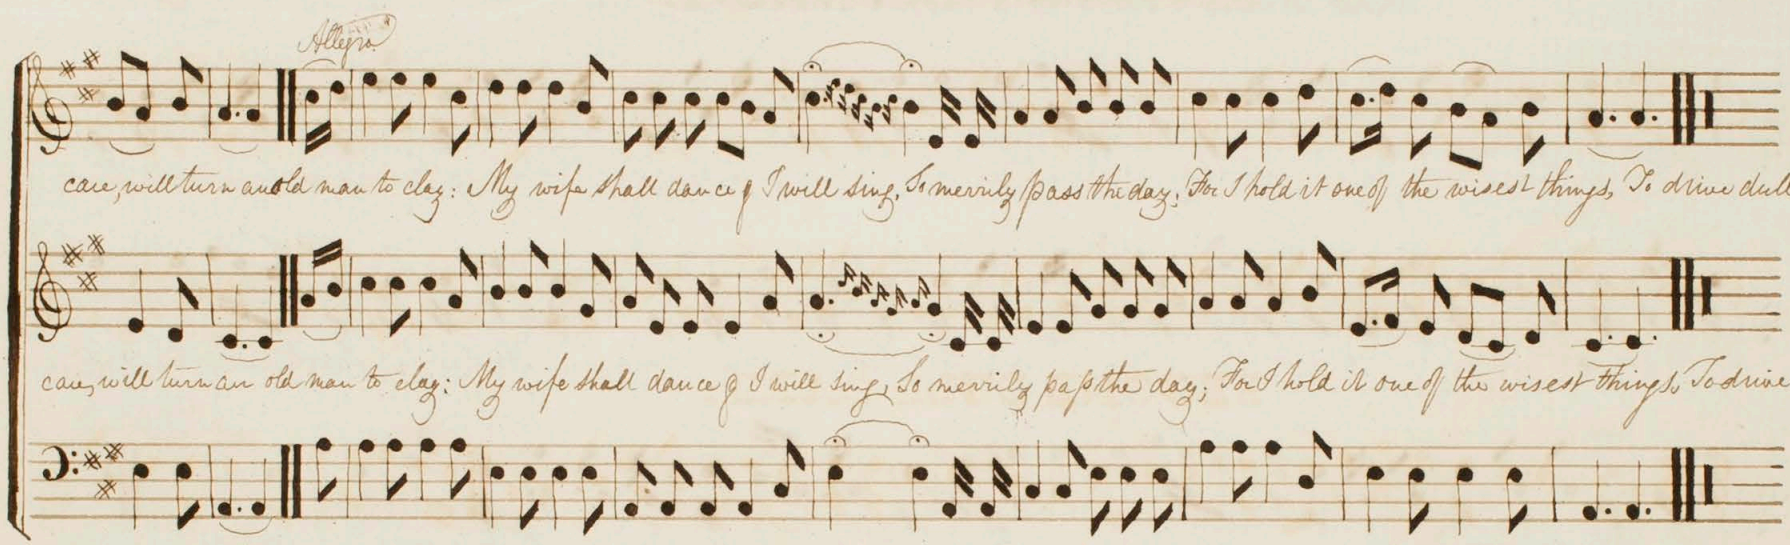 Allegro
care, will turn an old man to clay: My wife shall dance & I will sing, So merrily pass the day; For I hold it one of the wisest things, To drive dull
care, will turn an old man to clay: My wife shall dance & I will sing, So merrily paſs the day; For I hold it one of the wisest things, To drive